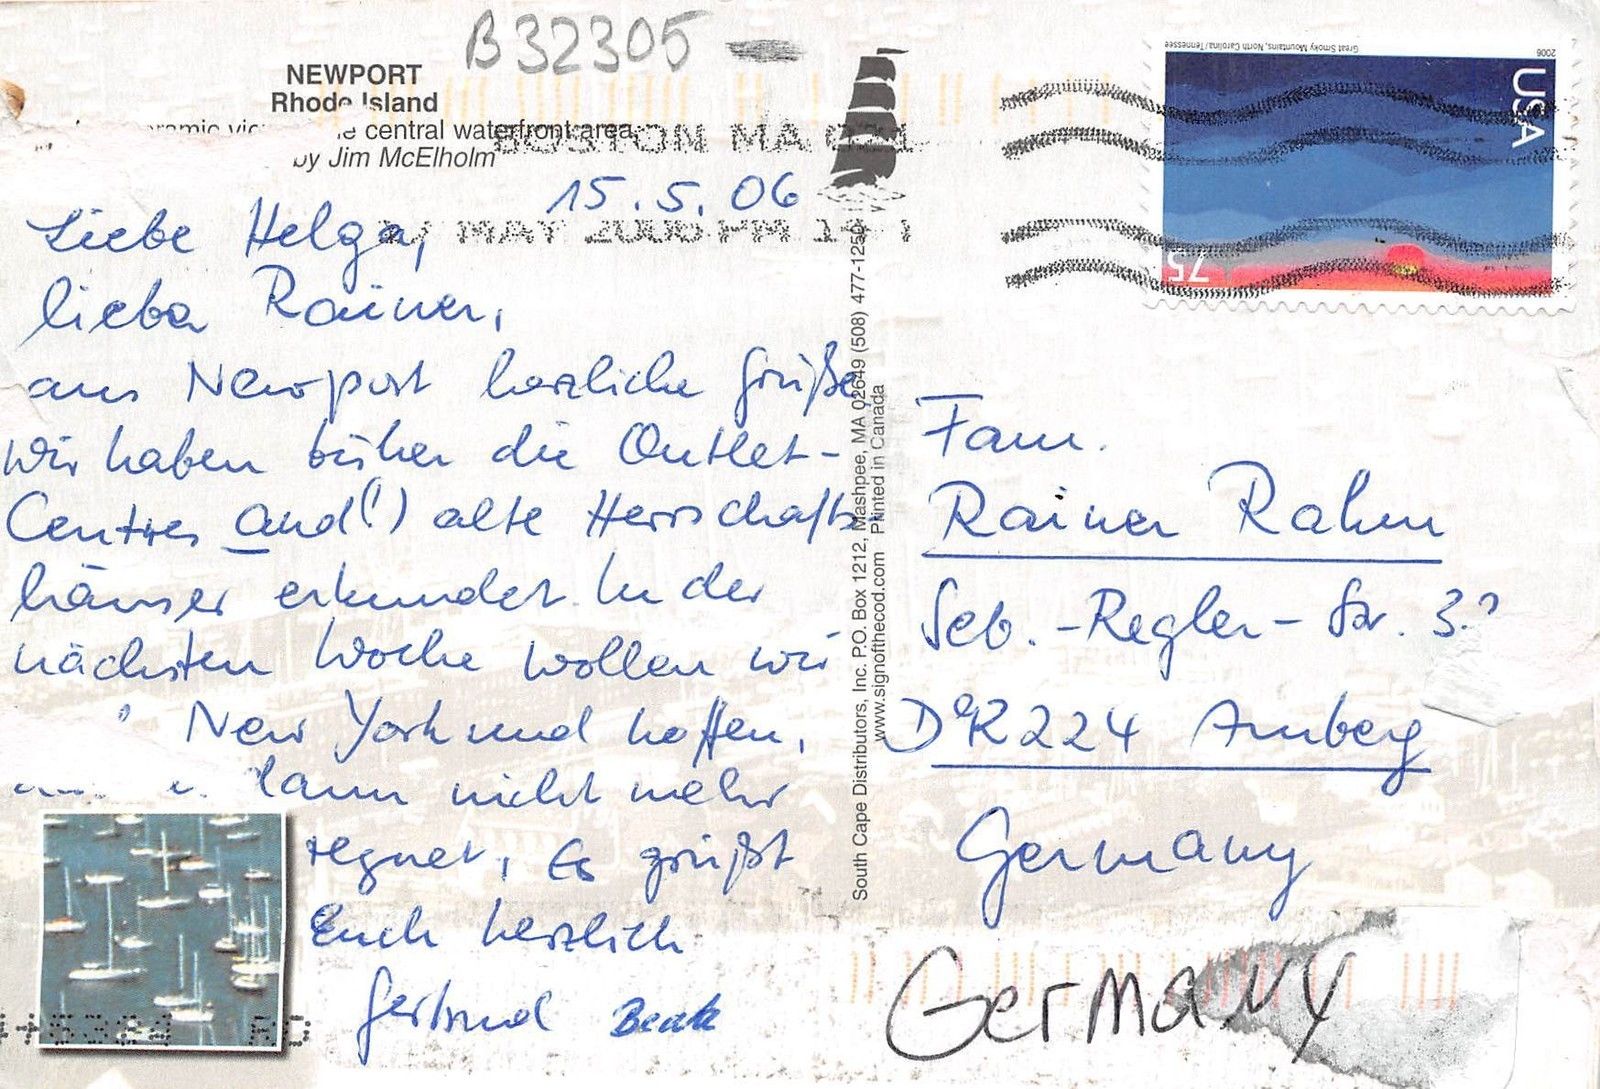 B32305
NEWPORT
Rhode Island
central waterfront area
by Jim McElholm
BOSTON MA
MAY 2006 PM
15.5.06
Liebe Helga,
lieber Rainer,
aus Newport herzliche Grüße,
wir haben bisher die Outlet-
Centres and(!) alte Herrschafts
häuser erkundet. In der
nächsten Woche wollen wir
New York und hoffen,
dann nicht mehr
regnet. Es grüßt
Euch herzlich
Gertrud Beate
South Cape Distributors, Inc. P.O. Box 1212, Mashpee, MA 02649 (508) 477-1250
www.signofthecod.com Printed in Canada
Great Smoky Mountains, North Carolina/Tennessee
2006
USA
75
Fam.
Rainer Rahm
Seb.-Regler-Str.
92224 Amberg
Germany
GerMaNY